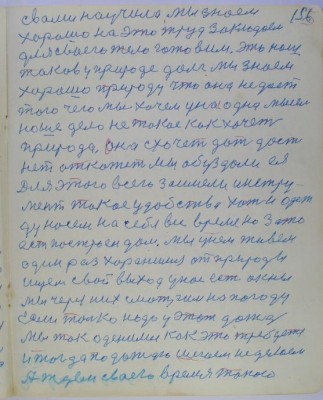 свами научила. Мы знаем 156
хорошо на это труд закладаем
для своего тело готовим, это наш
таков у природе долг. Мы знаем
хорошо природу что она не даст
того чего мы хочем у нас одна мысль
наше дело не такое как хочет
природа, она схочет даст даст
нет откажет мы обуздали ея
Для этого всего зашили инстру-
мент такое удобства хотя одеж
ду носем на себя ве время но за то
ест построен дом. мы у нем живем
один раз хоранимся от природы
ищем свой выход у нас ест окны
мы через них смотрим на погоду
Если только надо у этот дождь
Мы так оденимся как это требуется
и тогда по дождю шагаем не думаем
А ждем своего время такого